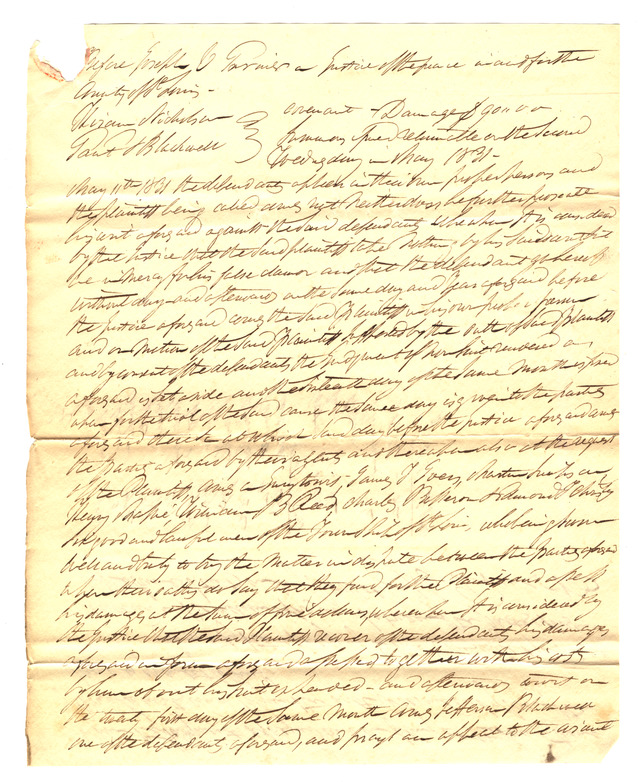 Before Joseph V Garnier a Justice of the peace in and for the
County of St Louis -
Hiram Nicholson
covenant - Damage $90.00
Saml S Blackwell
Summons issued returnable on the second
Wednesday in May 1831 -
May 11th 1831 the defendants appear in their own proper persons and
the plaintiff being called comes not neither does he further prosecute
his suit aforesaid against the said defendants whereupon It is considered
by the Justice that the said plaintiff take nothing by his said suit but
be in mercy for his false clamor and that the defendants go hereof
without day - and afterwards on the same day and year aforesaid before
the Justice aforesaid comes the said Plaintiff in his own proper person
and on motion of the said Plaintiff supported by the oath of said Plaintiff
and by consent of the defendants the Judgment of Non Suit rendered as
aforesaid is set aside and the day of the same month is fixed
upon for the trial of the said cause the same day is given to the parties
aforesaid there &c at which said day before the Justice aforesaid came
the parties aforesaid by their agents and thereupon also at the request
of the Plaintiff comes a Jury to wit, James
Henry William B Reed, Charles
six good and lawful men of the Township of St Louis, who being sworn
well and truly to try the matter in dispute between the parties aforesaid
upon their oaths do say that they find for the Plaintiff and assess
his damages at the sum of five dollars, whereupon It is considered by
the Justice that the said Plaintiff recover of the defendants his damages
aforesaid in form aforesaid assessed together with his costs
by him about his suit expended - and afterwards to wit on
the twenty first day of the same month comes Jefferson Blackwell
one of the defendants aforesaid, and prays an appeal to the circuit